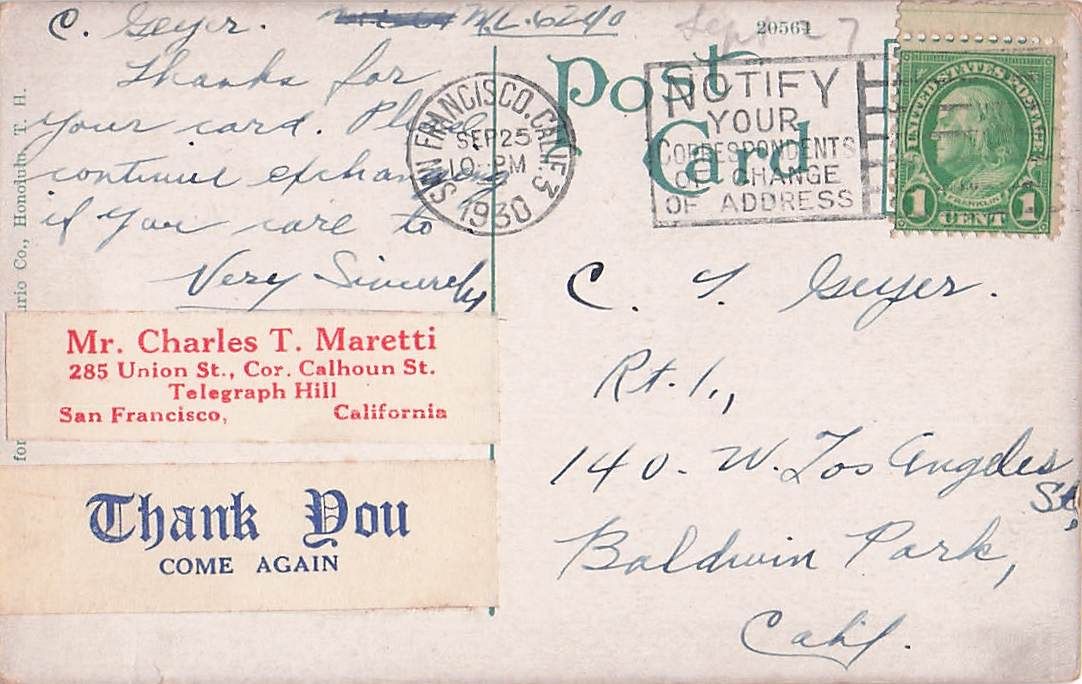 C. Geyer. W.C. 6240
Thanks for
your card. Please
continue exchanging
if you care to
Very Sincerely
Mr. Charles T. Maretti
285 Union St., Cor. Calhoun St.
Telegraph Hill
San Francisco, California
Thank You
COME AGAIN
urio Co., Honolulu, T. H.
for
Sept 27
20564
Post
Card
SAN FRANCISCO, CALIF. 3
SEP 25
10 PM
1930
NOTIFY
YOUR
CORRESPONDENTS
OF CHANGE
OF ADDRESS
UNITED STATES POSTAGE
FRANKLIN
1 CENT 1
C. T. Geyer.
Rt. 1.,
140. W. Los Angeles
St,
Baldwin Park,
Calif.